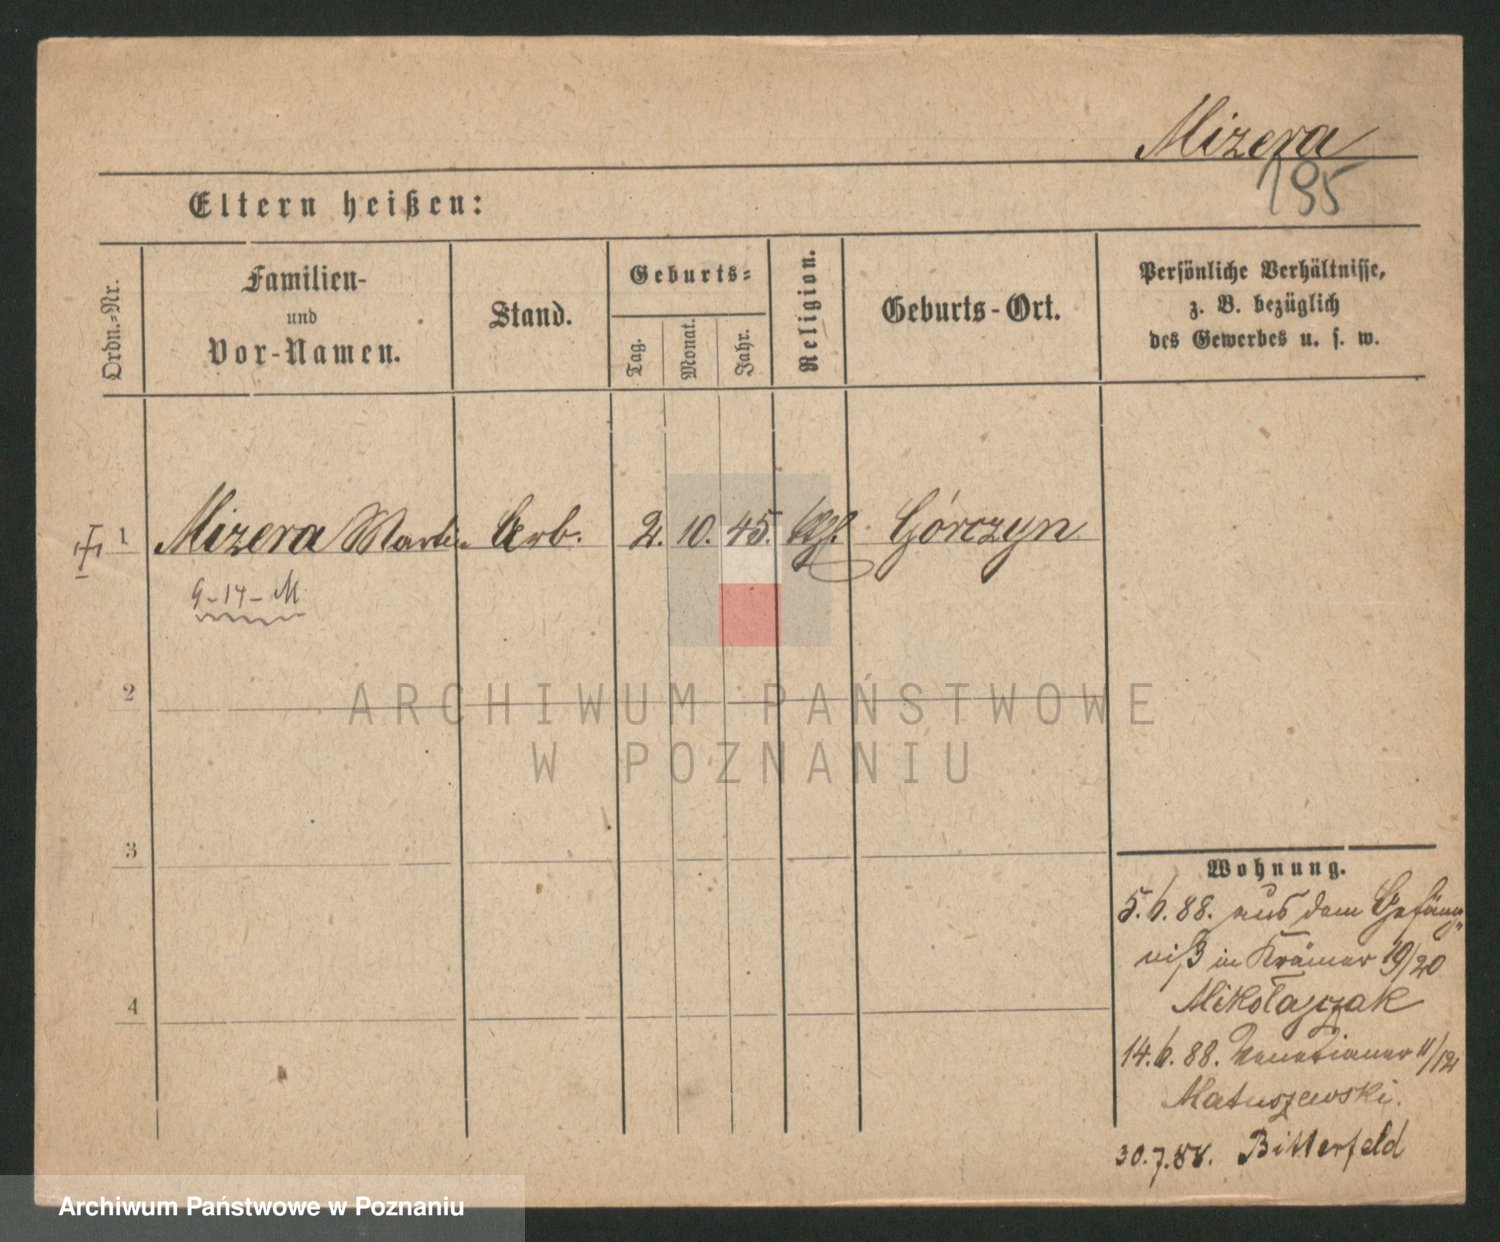 Mizera
195
Eltern heißen:
Ordn.-Nr.
Familien-
und
Vor-Namen.
Stand.
Geburts-
Tag.
Monat.
Jahr.
Religion.
Geburts-Ort.
Persönliche Verhältnisse,
z. B. bezüglich
des Gewerbes u. s. w.
1 Mizera Martin Arb. 2. 10. 45. Górczyn
9-14-M
2
3
4
Wohnung.
5.6.88. aus dem Gefäng-
niß in Krämer 19/20
Mikołajczak
14.6.88. Venetianer 11/12
Matuszewski.
30.7.88. Bitterfeld
ARCHIWUM PAŃSTWOWE
W POZNANIU
Archiwum Państwowe w Poznaniu